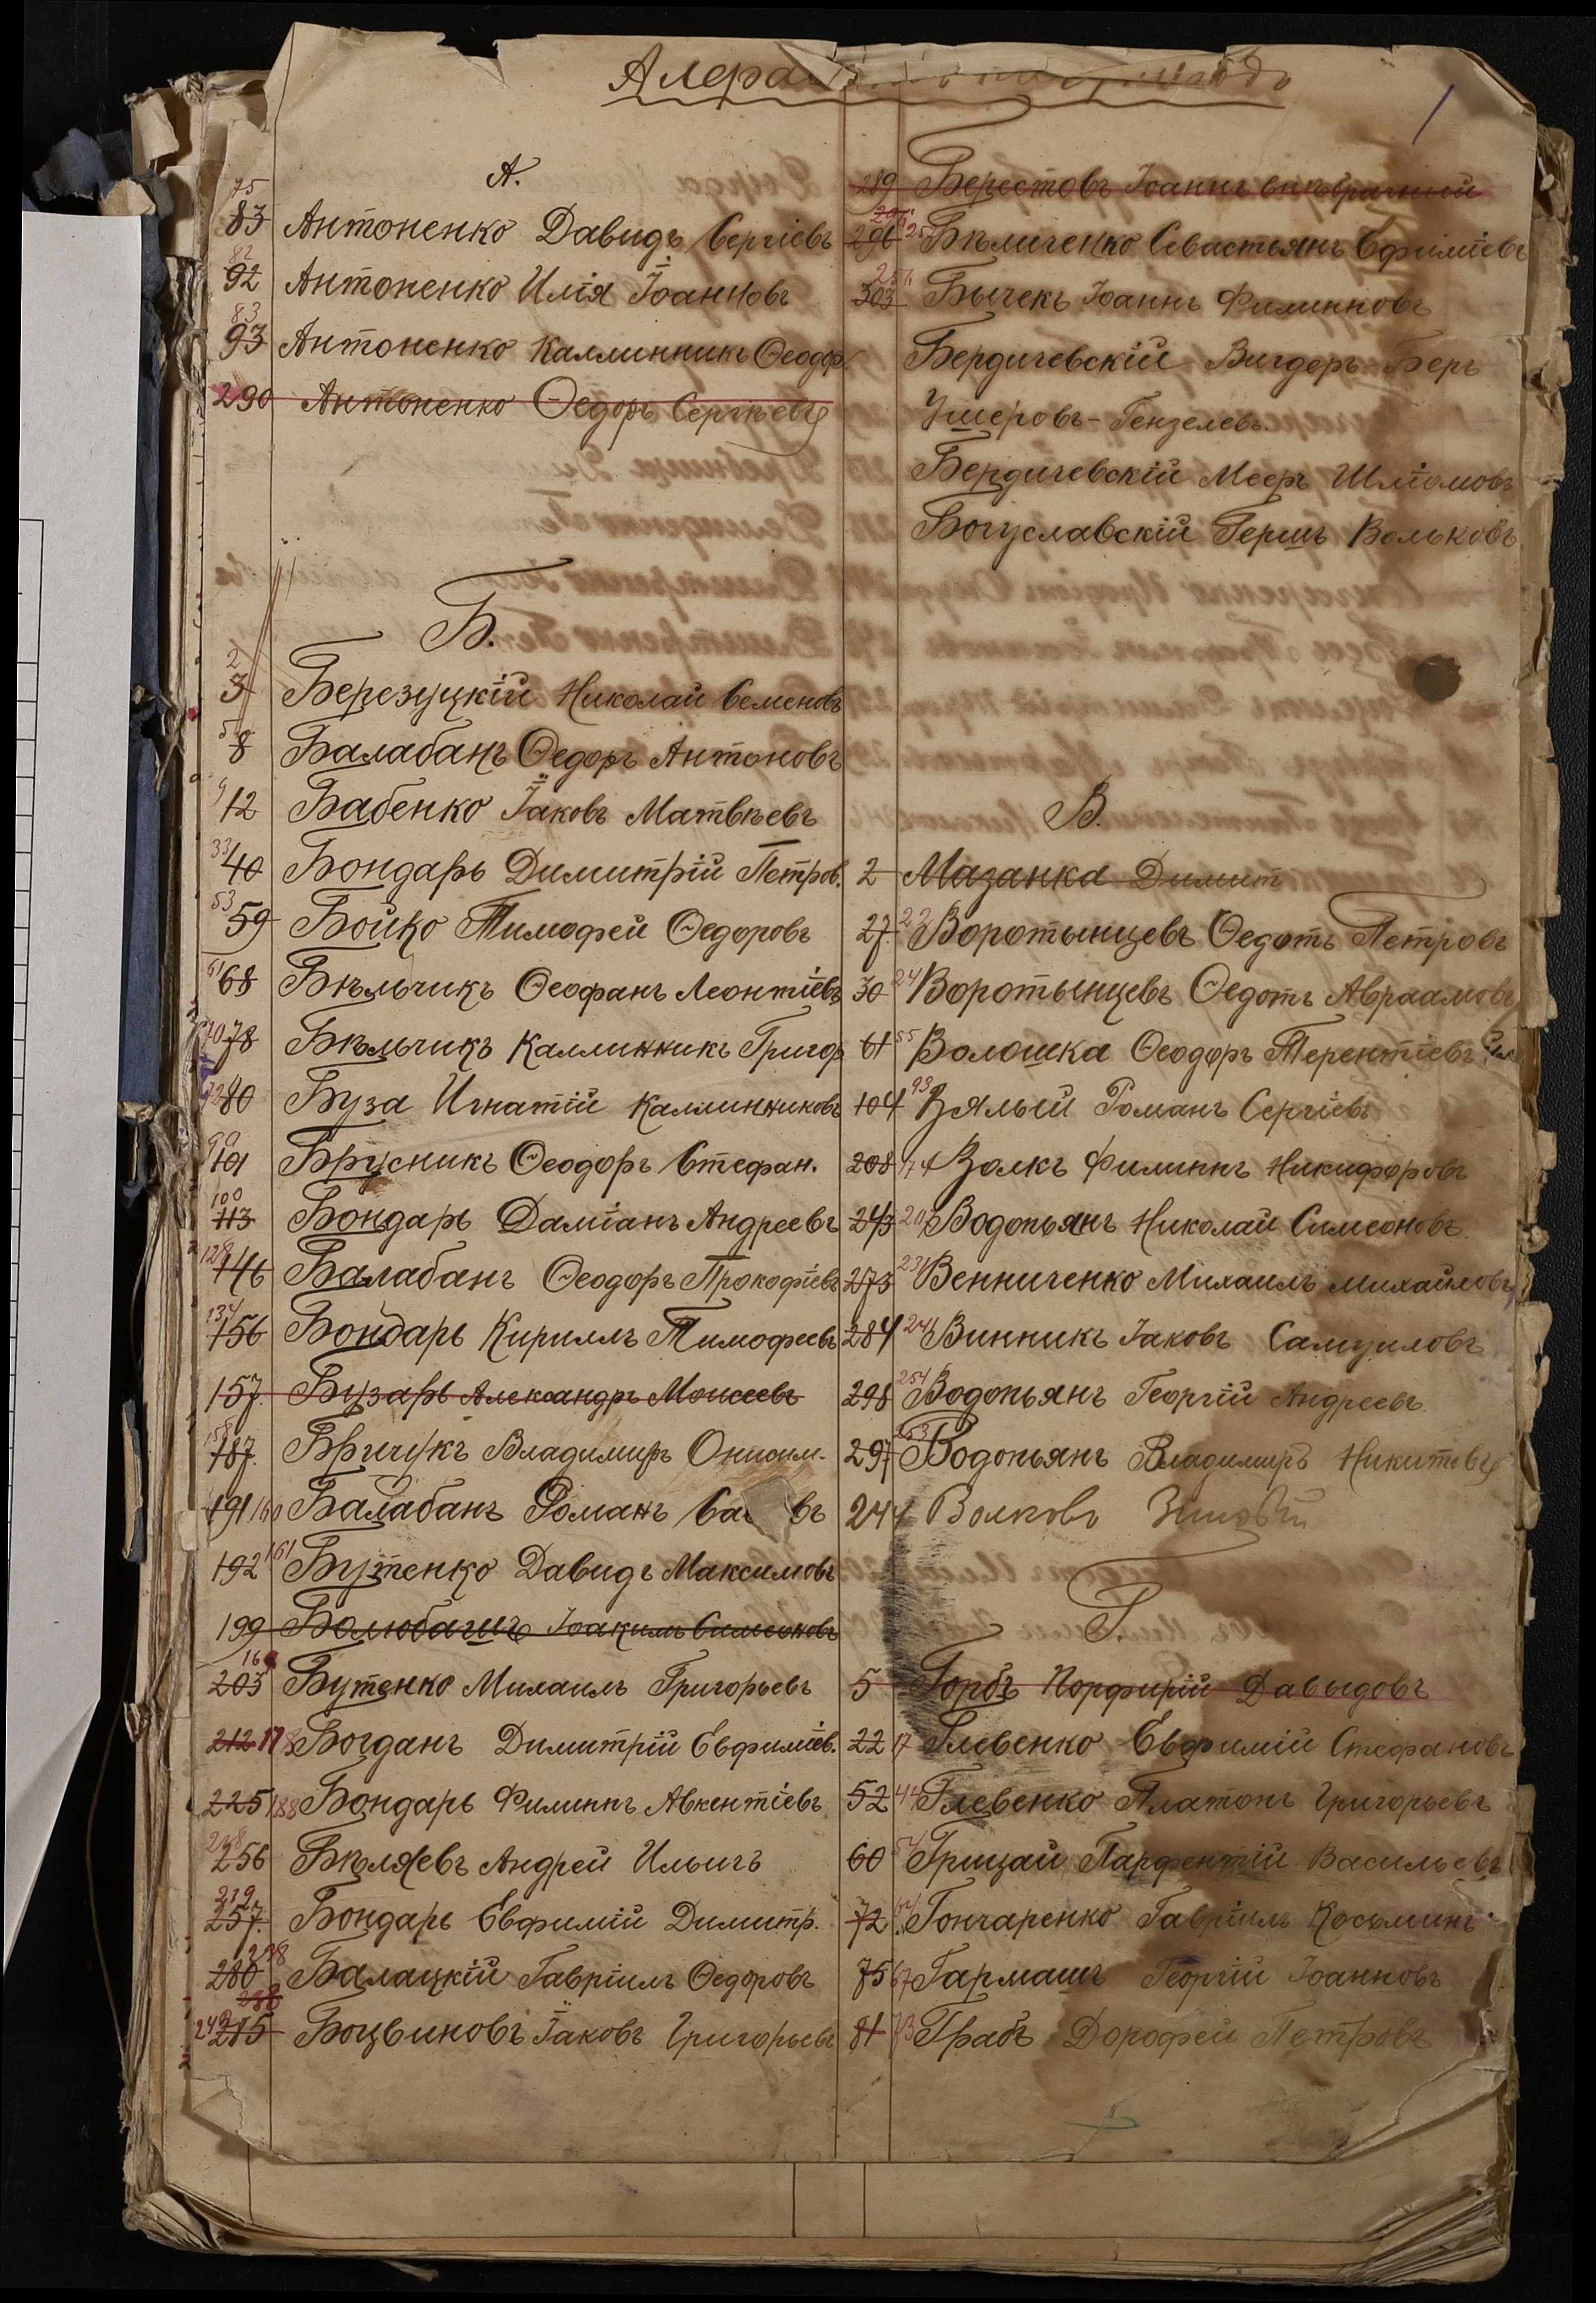 А.
75
83 Антоненко Давидъ Сергіевъ
82
92 Антоненко Илія Іоанновъ
83
93 Антоненко Каллинникъ Ѳеодор
290 Антоненко Ѳедоръ Сергѣевъ
Б.
2
3 Березуцкій Николай Семеновъ
5 8 Балабанъ Ѳедоръ Антоновъ
9 12 Бабенко Іаковъ Матвѣевъ
33 40 Бондарь Димитрій Петров.
53 59 Бойко Тимофей Ѳедоровъ
61 68 Бѣльчикъ Ѳеофанъ Леонтіевъ
70 78 Бѣльчикъ Каллинникъ Григор
72 80 Буза Игнатій Каллинниковъ
90
101 Брусникъ Ѳеодоръ Стефан.
100
113 Бондарь Даміанъ Андреевъ
128
146 Балабанъ Ѳеодоръ Прокофіевъ
134
156 Бондарь Кириллъ Тимофеевъ
157. Бузарь Александръ Моисеевъ
158
187. Бричукъ Владимиръ Онисим.
191 160 Балабанъ Романъ въ
192 161 Бутенко Давидъ Максимовъ
199 Болюбашъ Іоакимъ Симеоновъ
203 Бутенко Михаилъ Григорьевъ
212 178 Богданъ Димитрій Евфиміев.
225 188 Бондарь Филиппъ Авкентіевъ
218
256 Бѣляевъ Андрей Ильичъ
219
257. Бондарь Евфимій Димитр.
238
280 Балацкій Гавріилъ Ѳедоровъ
Боцвиновъ Іаковъ Григорьевъ
289 Берестовъ Іоаннъ
296 Бѣличенко Севастьянъ Ефиміевъ
256
303 Бычекъ Іоаннъ Филипповъ
Бердичевскій Вигдеръ-Беръ
Ушеровъ-Гензелевъ.
Бердичевскій Мееръ Шліомовъ
Богуславскій Гершъ Вольковъ
В.
2 Мазанка Димит
27. 22 Воротынцевъ Ѳедотъ Петровъ
30 24 Воротынцевъ Ѳедотъ Авраамовъ
61 55 Волошка Ѳеодоръ Терентіевъ
104 93 Вялый Романъ Сергіевъ
208 174 Волкъ Филиппъ Никифоровъ
243 207 Водопьянъ Николай Симеоновъ.
273 231 Венниченко Михаилъ Михайловъ
284 241 Винникъ Іаковъ Самуиловъ
298 254 Водопьянъ Георгій Андреевъ.
297 253 Водопьянъ Владимиръ Никитовъ
244 Волковъ Зиновій
Г.
5 Горбъ Порфирій Давыдовъ
22 17 Глевенко Евфимій Стефановъ
52 44 Глевенко Платонъ Григорьевъ
60 54 Грицай Парфентій Васильевъ
72. 64 Гончаренко Гавріилъ Косьминъ
75 67 Гармашъ Георгій Іоанновъ
81 73 Грабъ Дорофей Петровъ